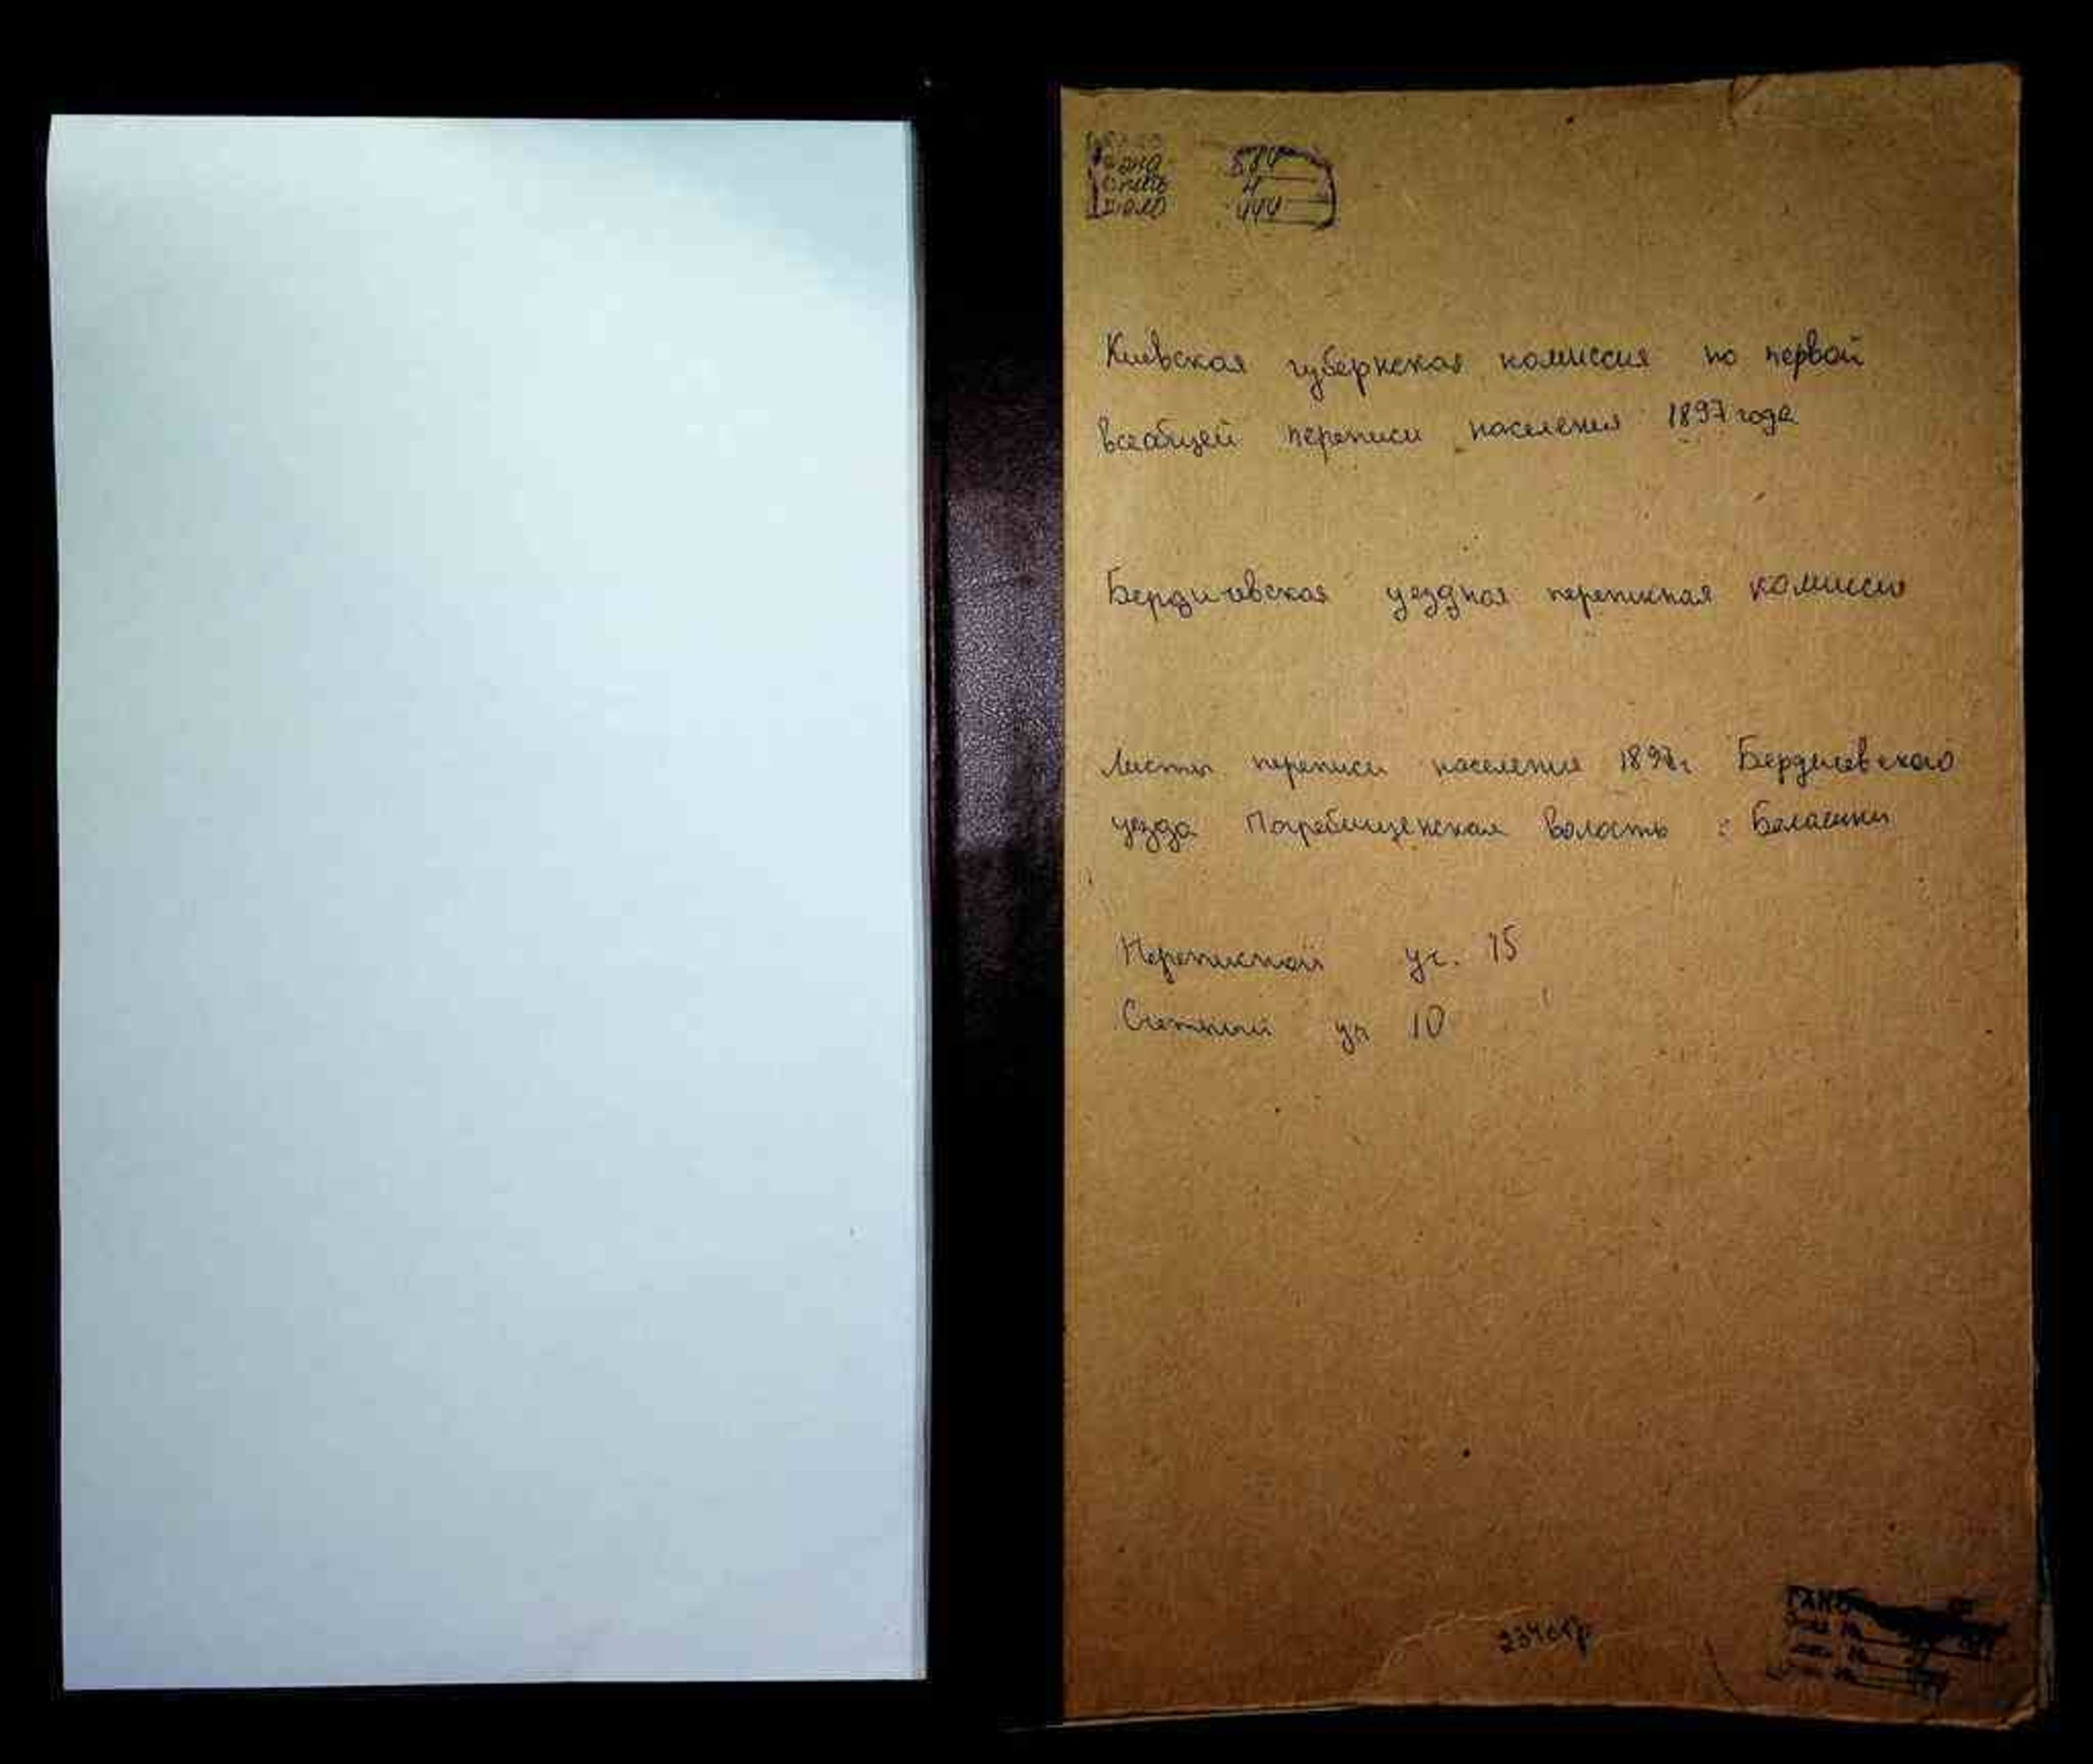 Фонд 584
Опись
Дело 444
Киевская губернская комиссия по первой
всеобщей переписи населения 1897 года
Бердичевская уездная переписная комиссия
Листы переписи населения 1897г Бердичевского
уезда Погребищенская волость с Балашки
Переписной уч. 15
Счетный уч 10